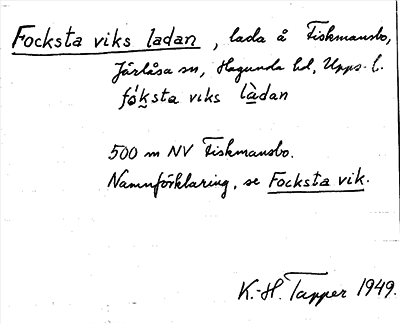 Focksta viks ladan, lada å Fiskmansbo,
Järlåsa sn, Hagunda hd, Upps. l.
fó̀ksta viks làdan
500 m NV Fiskmansbo.
Namnförklaring, se Focksta vik.
K.-H. Tapper 1949.